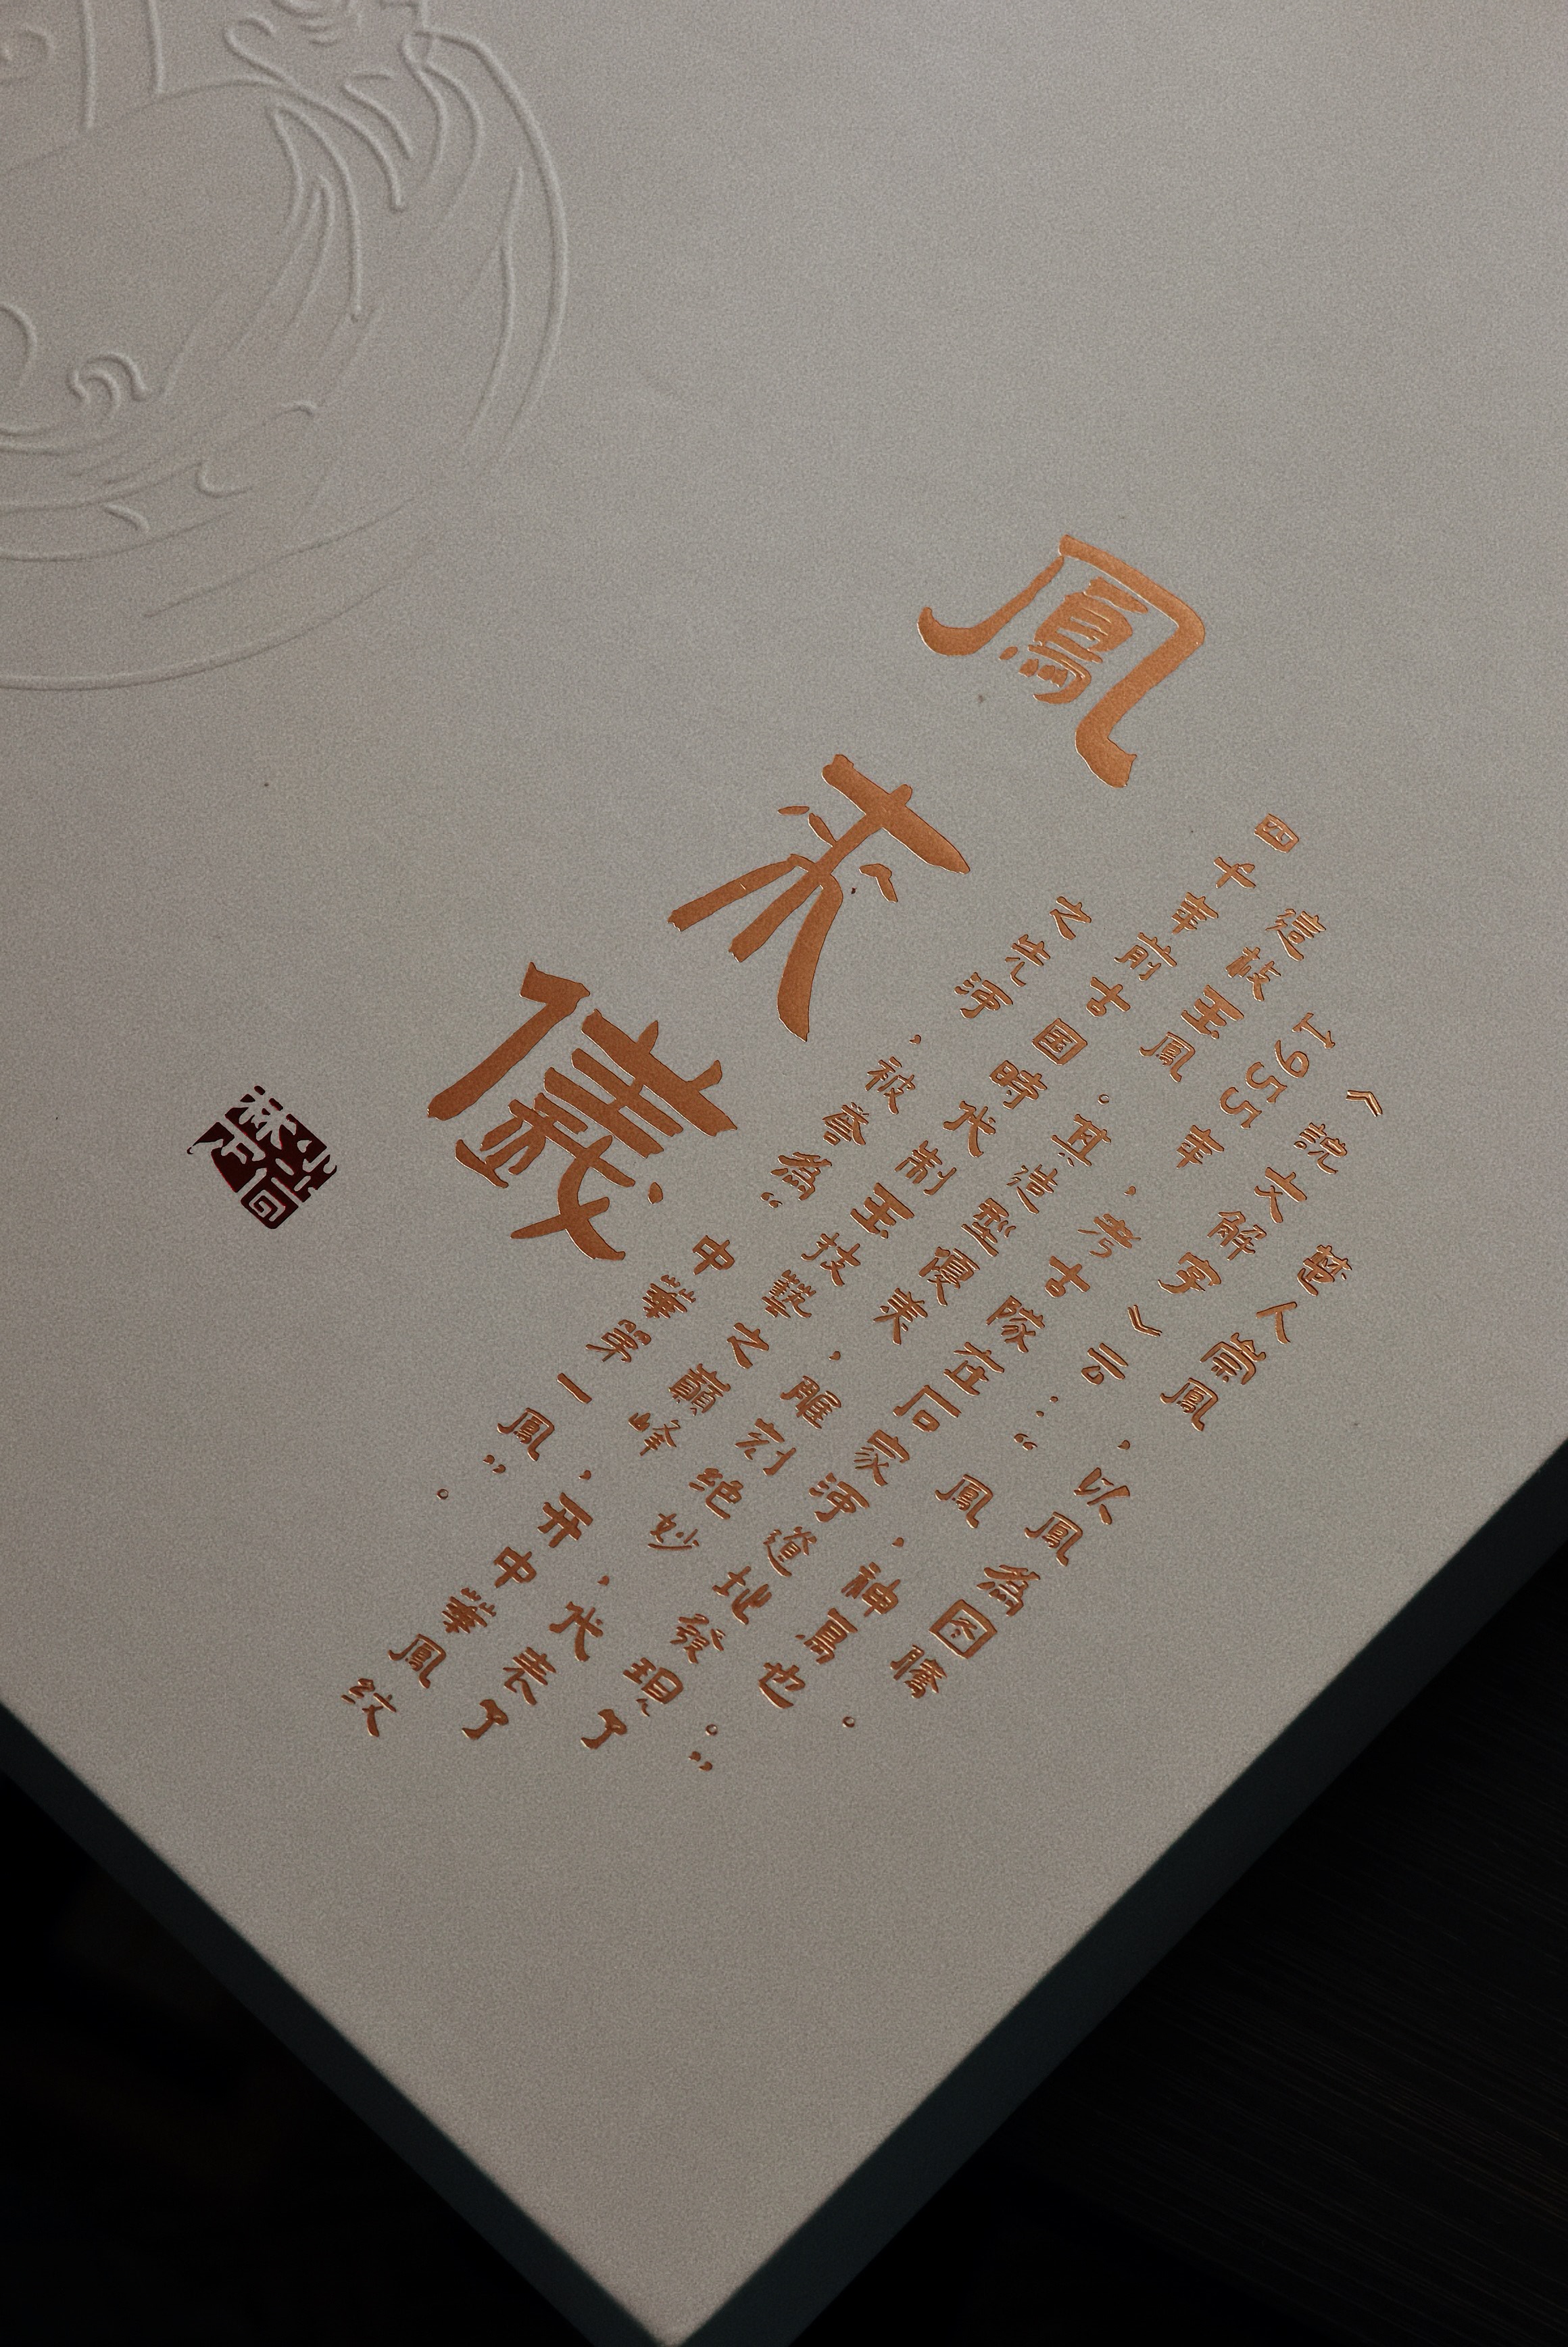 楚人崇鳳，以鳳為图腾。
《説文解字》云：“鳳，神鳥也。”
1955年，考古隊在石家河遺址發現了
這枝玉鳳。其造型優美，雕刻绝妙，代表了
四十年前古国時代制玉技藝之巔峰，开中華鳳纹
之先河，被誉為“中華第一鳳”。
鳳来儀